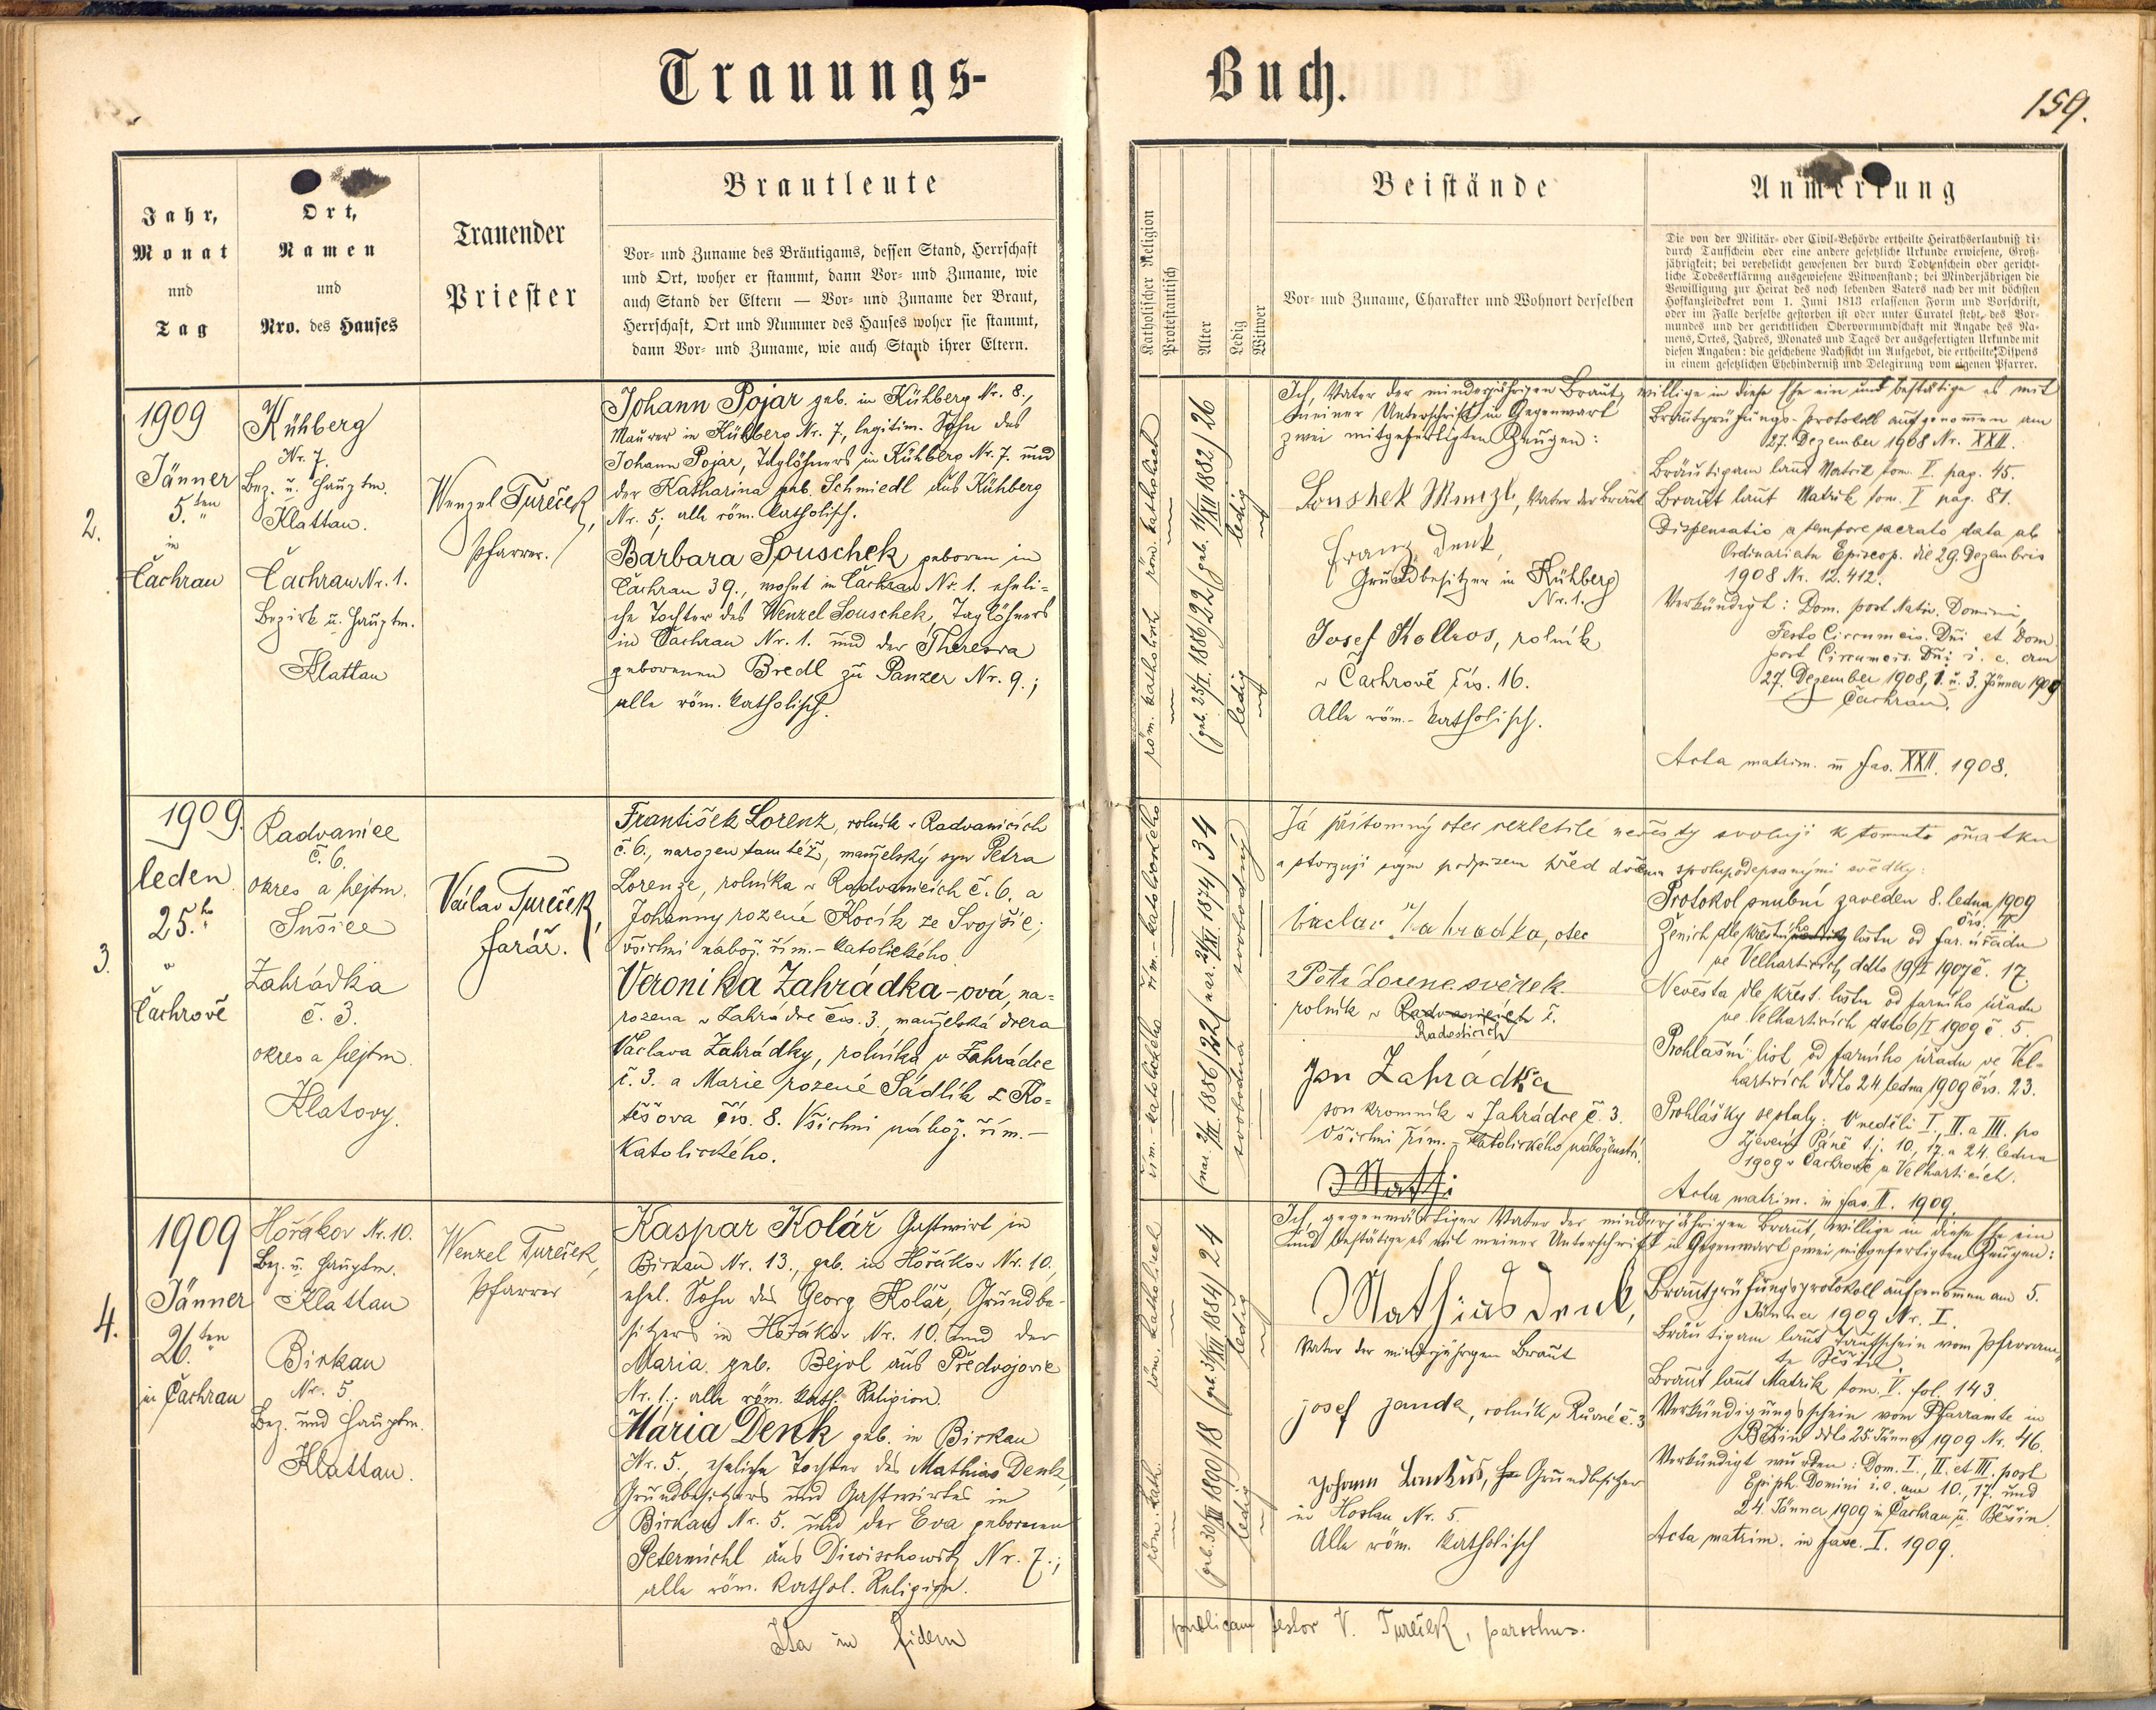 Trauungs-
Buch.
159.
Jahr,
Monat
und
Tag
Ort,
Namen
und
Nro. des Hauses
Trauender
Priester
Brautleute
Vor- und Zuname des Bräutigams, dessen Stand, Herrschaft
und Ort, woher er stammt, dann Vor- und Zuname, wie
auch Stand der Eltern — Vor- und Zuname der Braut,
Herrschaft, Ort und Nummer des Hauses woher sie stammt,
dann Vor- und Zuname, wie auch Stand ihrer Eltern.
Katholischer Religion
Protestantisch
Alter
Ledig
Witwer
Beistände
Vor- und Zuname, Charakter und Wohnort derselben
Anmerkung
Die von der Militär- oder Civil-Behörde ertheilte Heirathserlaubniß di-
durch Taufschein oder eine andere gesetzliche Urkunde erwiesene, Groß-
jährigkeit; bei verehelicht gewesenen der durch Todtenschein oder gericht-
liche Todeserklärung ausgewiesene Witwenstand; bei Minderjährigen die
Bewilligung zur Heirat des noch lebenden Vaters nach der mit höchsten
Hofkanzleidekret vom 1. Juni 1813 erlassenen Form und Vorschrift,
oder im Falle derselbe gestorben ist oder unter Curatel steht, des Vor-
mundes und der gerichtlichen Obervormundschaft mit Angabe des Na-
mens, Ortes, Jahres, Monates und Tages der ausgefertigten Urkunde mit
diesen Angaben: die geschehene Nachsicht im Aufgebot, die ertheilte Dispens
in einem gesetzlichen Ehehinderniß und Delegirung vom eigenen Pfarrer.
2.
1909
Jänner
5.ten
in
Čachrau
Kühberg
Nr. 7.
Bez. u. Hauptm.
Klattau.
Čachrau Nr. 1.
Bezirk u. Hauptm.
Klattau
Wenzel Tureček,
Pfarrer.
Johann Pojar geb. in Kühberg Nr. 8.,
Maurer in Kühberg Nr. 7, legitim. Sohn des
Johann Pojar, Taglöhners in Kühberg Nr. 7. und
der Katharina geb. Schmiedl aus Kühberg
Nr. 5; alle röm. katholisch.
Barbara Souschek geboren in
Čachrau 39., wohnt in Čachrau Nr. 1. eheli-
che Tochter des Wenzel Souschek, Taglöhners
in Čachrau Nr. 1. und der Theresia
geborenen Bredl zu Panzer Nr. 9.;
alle röm. katholisch.
röm. katholisch
röm. katholisch
(geb. 25/I. 1886) 22
(geb. 14/XII 1882) 26
ledig
ledig
Ich, Vater der minderjährigen Braut, willige in diese Ehe ein und bestätige es mit
meiner Unterschrift in Gegenwart
zwei mitgefertigten Zeugen:
Soushek Wenzl, Vater der Braut
Franz Denk,
Grundbesitzer in Kühberg
Nr. 1.
Josef Kollros, rolník
v Čachrově čís. 16.
Alle röm.- katholisch.
Brautprüfungs-Protokoll aufgenommen am
27. Dezember 1908 Nr. XXII.
Bräutigam laut Matrik tom. V. pag. 45.
Braut laut Matrik tom. V pag. 81.
Dispensatio a tempore sacrato data ab
Ordinariatu Episcop. die 29. Dezembris
1908 Nr. 12.412.
Verkündigt: Dom. post Nativ. Domini,
Festo Circumcis. Dni et Dom
post Circumcis. Dni i. e. am
27. Dezember 1908, 1. u. 3. Jänner 1909
Čachrau.
Acta matrim. in fas. XXII. 1908.
3.
1909.
leden
25.ho
v
Čachrově
Radvanice
č. 6.
okres a hejtm.
Sušice
Zahrádka
č. 3.
okres a hejtm.
Klatovy.
Václav Tureček,
farář.
František Lorenz, rolník v Radvanicích
č. 6., narozen tamtéž, manželský syn Petra
Lorenze, rolníka v Radvanicích č. 6. a
Johanny rozené Kocík ze Svojšic;
všichni nábož. řím.-katolického.
Veronika Zahrádka-ová, na-
rozena v Zahrádce čís. 3., manželská dcera
Václava Zahrádky, rolníka v Zahrádce
č. 3. a Marie rozené Sádlík z Ko-
těšova čís. 8. Všichni nábož. řím.-
katolického.
řím.-katolického
řím.-katolického
1886) 22
1874) 34
svobodná
svobodný
Já přítomný otec nezletilé nevěsty svoluji k tomuto sňatku
a stvrzuji svým podpisem před dvěma spolupodepsanými svědky:
Vaclav Zahradka, otec
Petr Lorenc svědek
rolník v Radvanicích č.
Radosticích
Jan Zahrádka
soukromník v Zahrádce č. 3.
Všichni řím.-katolického náboženství.
Mathi
Protokol snubní zaveden 8. ledna 1909
čís. II.
Ženich dle křestního listu od far. úřadu
ve Velharticích ddto 19/I 1909 č. 17
Nevěsta dle křest. listu od farního úřadu
ve Velharticích ddto 6/I 1909 č. 5.
Prohlašní list od farního úřadu ve Vel-
harticích ddto 24. ledna 1909 čís. 23.
Prohlášky se staly: V neděli I., II. a III. po
Zjevení Páně t.j. 10., 17. a 24. ledna
1909 v Čachrově a Velharticích.
Acta matrim. in fas. II. 1909.
4.
1909
Jänner
26.ten
in Čachrau
Hořákov Nr. 10.
Bez. u. Hauptm.
Klattau
Birkau
Nr. 5.
Bez. und Hauptm.
Klattau.
Wenzel Tureček,
Pfarrer
Kaspar Kolář Gastwirt in
Birkau Nr. 13., geb. in Hořákov Nr. 10.,
ehel. Sohn des Georg Kolář, Grundbe-
sitzers in Hořákov Nr. 10. und der
Maria geb. Bejvl aus Předvojovic
Nr. 1.; alle röm. kath. Religion.
Maria Denk geb. in Birkau
Nr. 5., eheliche Tochter des Mathias Denk,
Grundbesitzers und Gastwirtes in
Birkau Nr. 5. und der Eva geborenen
Petermichl aus Diwischowitz Nr. 7.;
alle röm. kathol. Religion.
röm. kath.
röm. katholisch
(geb. 30/XI 1890) 18
(geb. 31/XII 1884) 24
ledig
ledig
Ich, gegenwärtiger Vater der minderjährigen Braut, willige in diese Ehe ein
und bestätige es mit meiner Unterschrift in Gegenwart zwei mitgefertigten Zeugen:
Mathias Denk,
Vater der minderjährigen Braut
josef janda, rolník v Rovné č. 3
Johann Lankus, Grundbesitzer
in Koslau Nr. 5.
Alle röm. katholisch
Brautprüfungsprotokoll aufgenommen am 5.
Jänner 1909 Nr. I.
Bräutigam laut Taufschein vom Pfarram-
te Běšin.
Braut laut Matrik tom. V. fol. 143.
Verkündigungsschein vom Pfarramte in
Běšin ddto 25. Jänner 1909 Nr. 46.
Verkündigt wurden: Dom. I., II. et III. post
Epiph. Domini i. e. am 10., 17. und
24. Jänner 1909 in Čachrau u. Běšin.
Acta matrim. in fasc. I. 1909.
Ita in fidem
publicam testor V. Tureček, parochus.